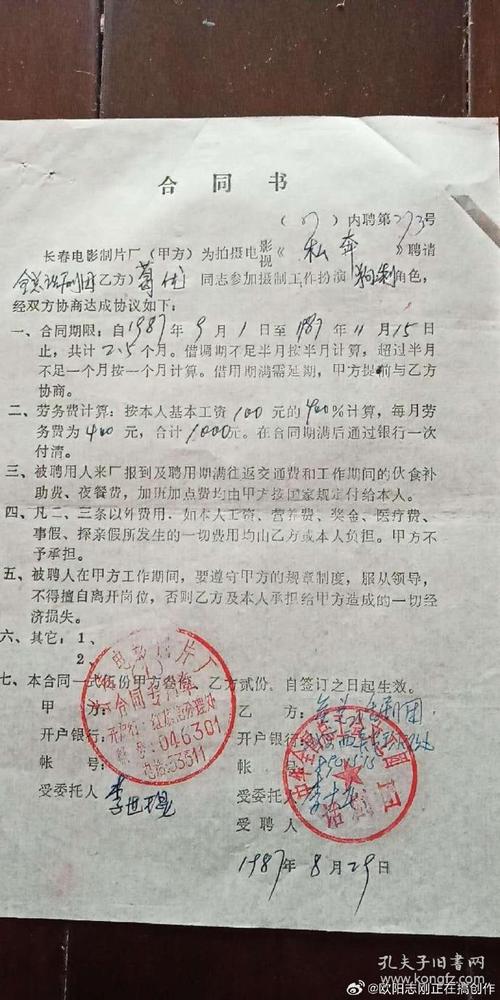 合同书
(87)内聘第273号
长春电影制片厂（甲方）为拍摄电影视《私奔》聘请
全总话剧团乙方）葛优同志参加摄制工作扮演角色，
经双方协商达成协议如下：
一、合同期限：自1987年9月1日至1987年11月15日
止，共计2.5个月。借调期不足半月按半月计算，超过半月
不足一个月按一个月计算。借用期满需延期，甲方提前与乙方
协商。
二、劳务费计算：按本人基本工资100元的400%计算，每月劳
务费为400元，合计1000元。在合同期满后通过银行一次
付清。
三、被聘用人来厂报到及聘用期满往返交通费和工作期间的伙食补
助费、夜餐费，加班加点费均由甲方按国家规定付给本人。
四、凡二、三条以外费用，如本人工资、营养费、奖金、医疗费、
事假、探亲假所发生的一切费用均由乙方或本人负担。甲方不
予承担。
五、被聘人在甲方工作期间，要遵守甲方的规章制度，服从领导，
不得擅自离开岗位，否则乙方及本人承担给甲方造成的一切经
济损失。
六、其它：1、
2、
七、本合同一式伍份甲方叁份，乙方贰份，自签订之日起生效。
甲方：
乙方：全总话剧团
开户银行
开户银行：
帐号：
帐号：
受委托人 李世
受委托人
受聘人
1987年8月29日
电影制片厂
合同专用章
开户行：红旗街办理处
帐号：046301
电话：53311
中华全国总工会
话剧团
孔夫子旧书网
www.kongfz.com
@欧阳志刚正在搞创作